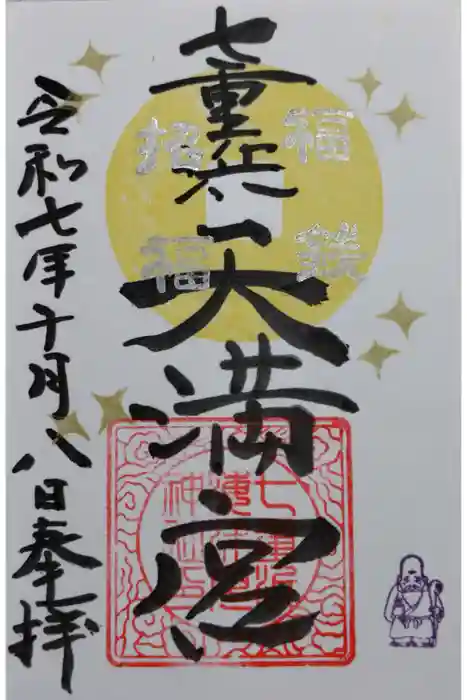 七重浜天満宮
福銭
招福
令和七年十月八日奉拝
七重浜
神社印